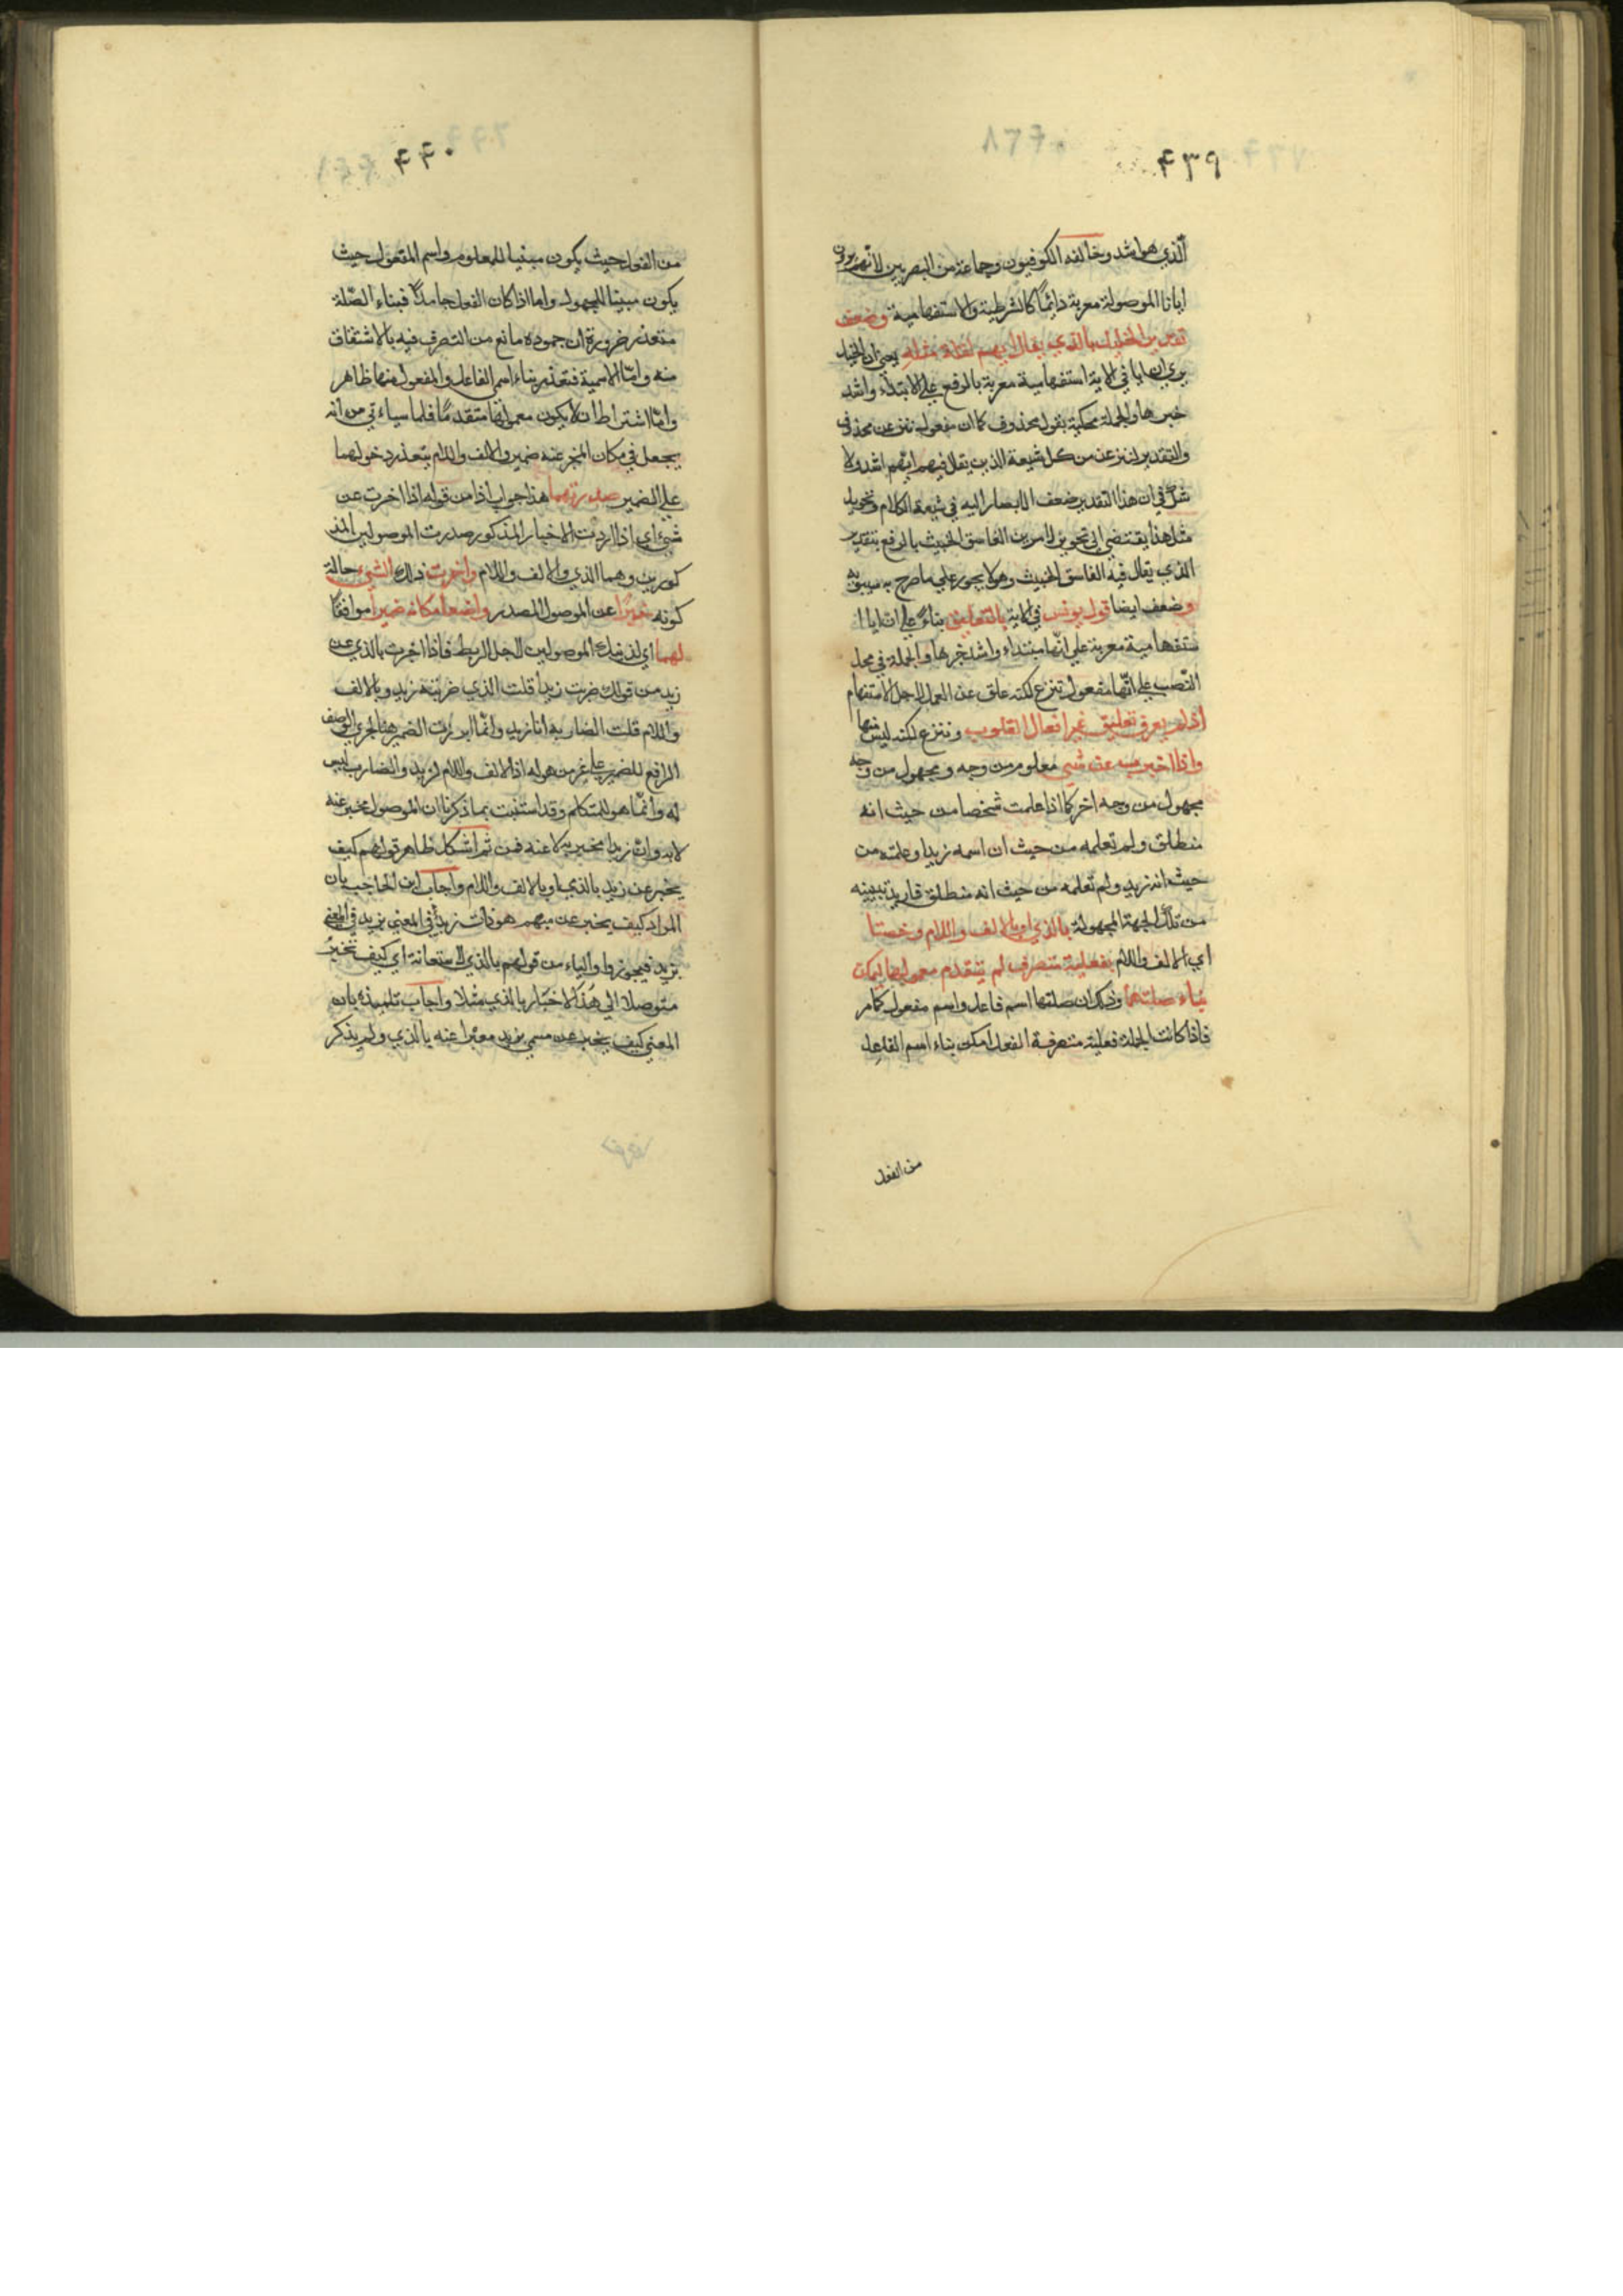 ۴۳۹
الذي هو اشد وخالفه الكوفيون وجماعة من البصريين لانهم يرون
ايانا الموصولة معربة دائماً كالشرطية والاستفهامية وضعف
تقدير الخليل بالذي يقال ايهم لقلة مثله يعني ان الخليل
يري ان ايا في الاية استفهامية معربة بالرفع علي الابتداء واشد
خبرها والجملة محكية بقول محذوف كما ان مفعول ننزعن محذوف
والتقدير لننزعن من كل شيعة الذين يقال فيهم ايهم اشد ولا
شك في ان هذا التقدير ضعف الا يصار اليه في شيعة الكلام وتجويز
مثل هذا يقتضي الي تجويز لاضربن الفاسق الخبيث بالرفع بتقدير
الذي يقال فيه الفاسق الخبيث وهو لا يجوز علي ما صرح به سيبويه
وضعف ايضا قول يونس في الاية بالتعليق بناءً علي ان ايا ا
ستفهامية معربة علي انها مبتداء واشد خبرها والجملة في محل
النصب علي انها مفعول ننزع لكنه علق عن العمل لاجل الاستفهام
اذ لم يعرف تعليق غير افعال القلوب وننزع لكنه ليس منها
واذا اخبرت عن شيء معلوم من وجه و مجهول من وجه
مجهول من وجه اخر كما اذا علمت شخصا من حيث انه
منطلق ولم تعلمه من حيث ان اسمه زيد او علمته من
حيث انه زيد ولم تعلمه من حيث انه منطلق فاريد تبيينه
من تلك الجهة المجهولة بالذي او بالالف واللام وخصتا
اي الالف واللام بفعلية متصرف لم يتقدم معمولها ليمكن
بناء صلتها وذلك ان صلتها اسم فاعل واسم مفعول كما مر
فاذا كانت الجملة فعلية متصرفة الفعل امكن بناء اسم الفاعل
من الفعل
۴۴۰
من الفعل حيث يكون مبنيا للمعلوم واسم المفعول حيث
يكون مبنيا للمجهول واما اذا كان الفعل جامداً فبناء الصلة
متعذر ضرورة ان جموده مانع من التصرف فيه بالاشتقاق
منه واما الاسمية فتعذر بناء اسم الفاعل والمفعول منها ظاهر
واما اشتراط ان لا يكون معمولها متقدماً فلما سياءتي من انه
يجعل في مكان المخبر عنه ضمير والالف واللام يتعذر دخولهما
علي الضمير صدرتهما هذا جواب اذا من قوله اذا اخبرت عن
شيء اي اذا اردت الاخبار المذكور صدرت الموصولين المذ
كورين وهما الذي والالف واللام واخرت ذلك الشيء حالة
كونه خبرًا عن الموصول المصدر واضعاً مكانه ضميرا موافقا
لهما اي لذينك الموصولين لاجل الربط فاذا اخبرت بالذي عن
زيد من قولك ضربت زيداً قلت الذي ضربته زيد وبالالف
واللام قلت الضاربه انا زيد وانما ابرزت الضمير هنا لجري الوصف
الرافع للضمير علي غير من هو له اذ الالف واللام لزيد والضارب ليس
له وانما هو للمتكلم وقد استنبت بما ذكرنا ان الموصول مخبر عنه
لا به وان زيدا مخبر به لا عنه فمن ثم اشكل ظاهر قولهم كيف
يخبر عن زيد بالذي او بالالف واللام واجاب ابن الحاجب بان
المراد كيف يخبر عن مبهم هو ذات زيد في المعني بزيد في المعني
بزيد فيجوزوا والباء من قولهم بالذي للاستعانة اي كيف تخبر
متوصلا الي هذا الاخبار بالذي مثلا واجاب تلميذه بانه
المعني كيف يخبر عن مسمي بزيد معبرا عنه بالذي ولم يذكر